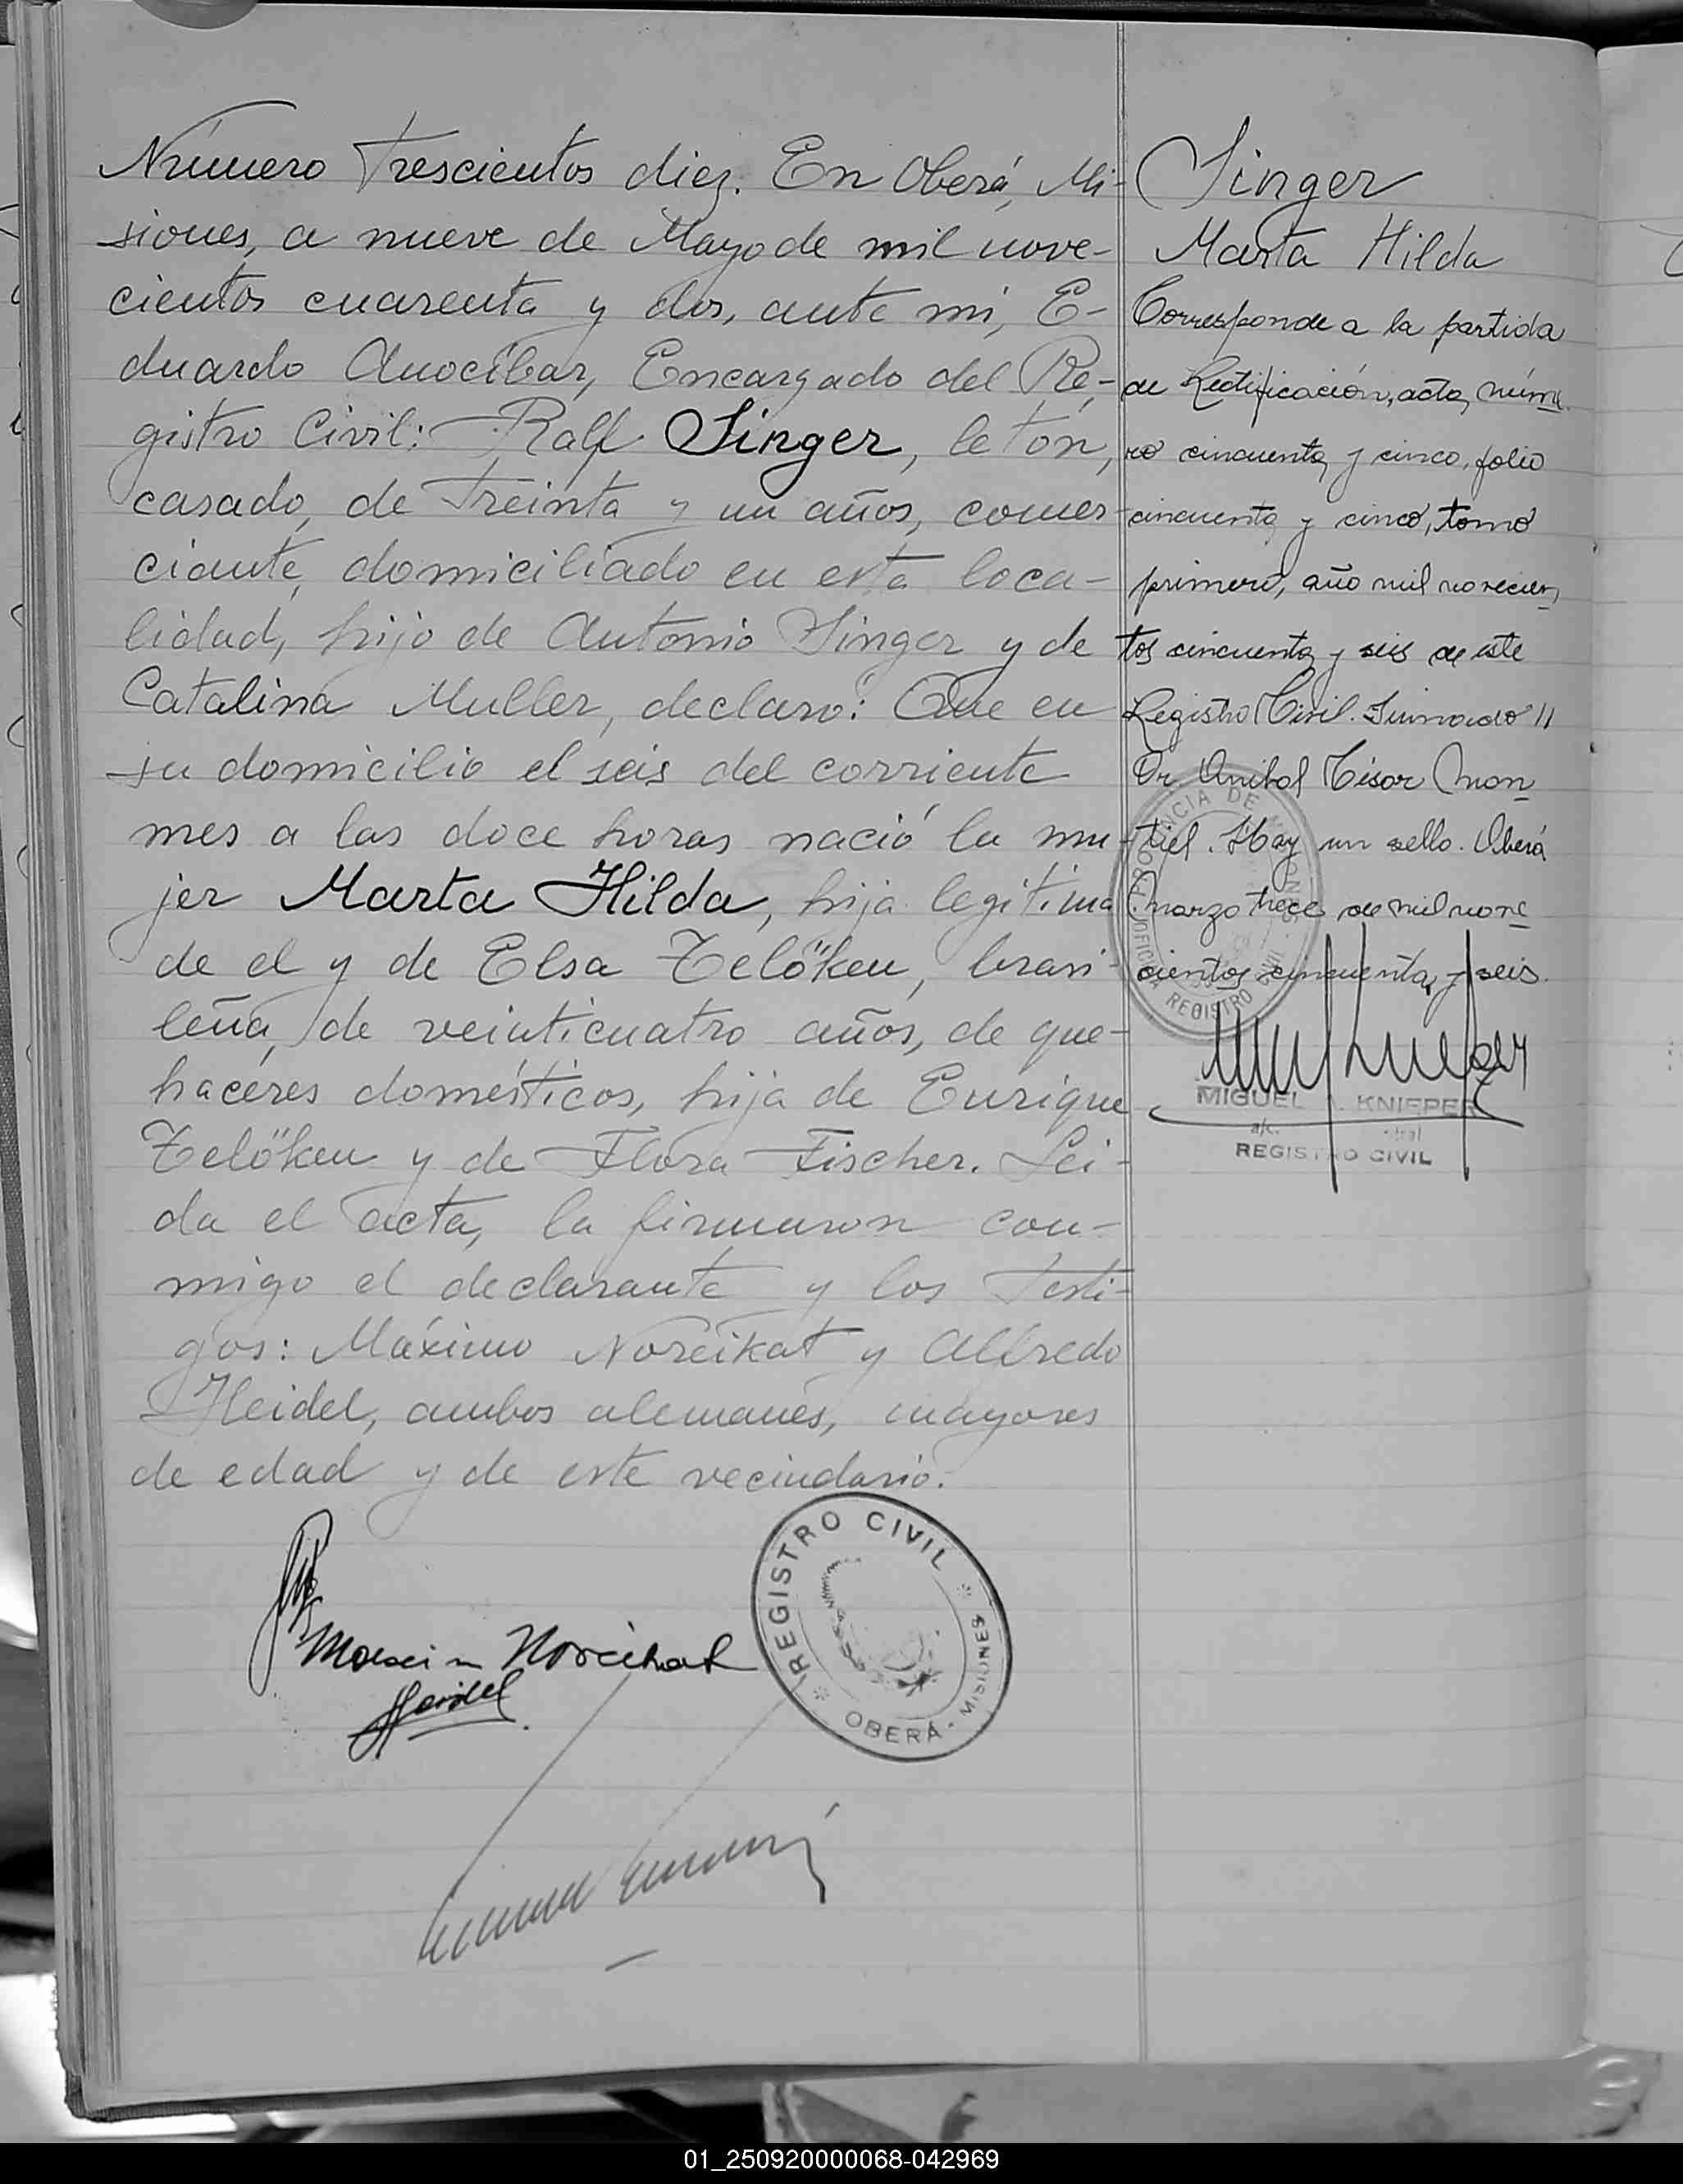 Número Trescientos diez. En Oberá, Mi-
siones, a nueve de Mayo de mil nove-
cientos cuarenta y dos, ante mi, E-
duardo Anocíbar, Encargado del Re-
gistro Civil: Ralf Singer, letón,
casado, de treinta y un años, comer-
ciante, domiciliado en esta loca-
lidad, hijo de Antonio Singer y de
Catalina Muller, declaro: Que en
su domicilio el seis del corriente
mes a las doce horas nació la mu-
jer Marta Hilda, hija legitima
de el y de Elsa Telöken, brasi-
leña, de veinticuatro años, de que-
haceres domésticos, hija de Enrique
Telöken y de Flora Fischer. Lei-
da el acta, la firmaron con-
migo el declarante y los testi-
gos: Máximo Noreikat y Alfredo
Heidel, ambos alemanes, mayores
de edad y de este vecindario.
Noreikat
Heidel
REGISTRO CIVIL
OBERÁ - MISIONES
Singer
Marta Hilda
Corresponde a la partida
de Rectificación, acta, núme
ro cincuenta y cinco, folio
cincuenta y cinco, tomo
primero, año mil novecien
tos cincuenta y seis de este
Registro Civil. Firmado //
Dr. Anibal Césor Mon
tiel. Hay un sello. Oberá
marzo trece de mil nove
cientos cincuenta y seis.
PROVINCIA DE MISIONES
OFICINA REGISTRO CIVIL
MIGUEL KNIEPER
REGISTRO CIVIL
01_250920000068-042969